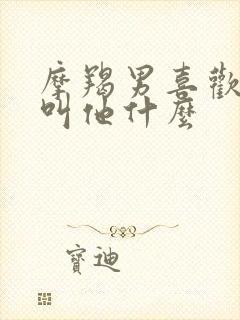 摩羯男喜歡
叫他什麼
寶迪